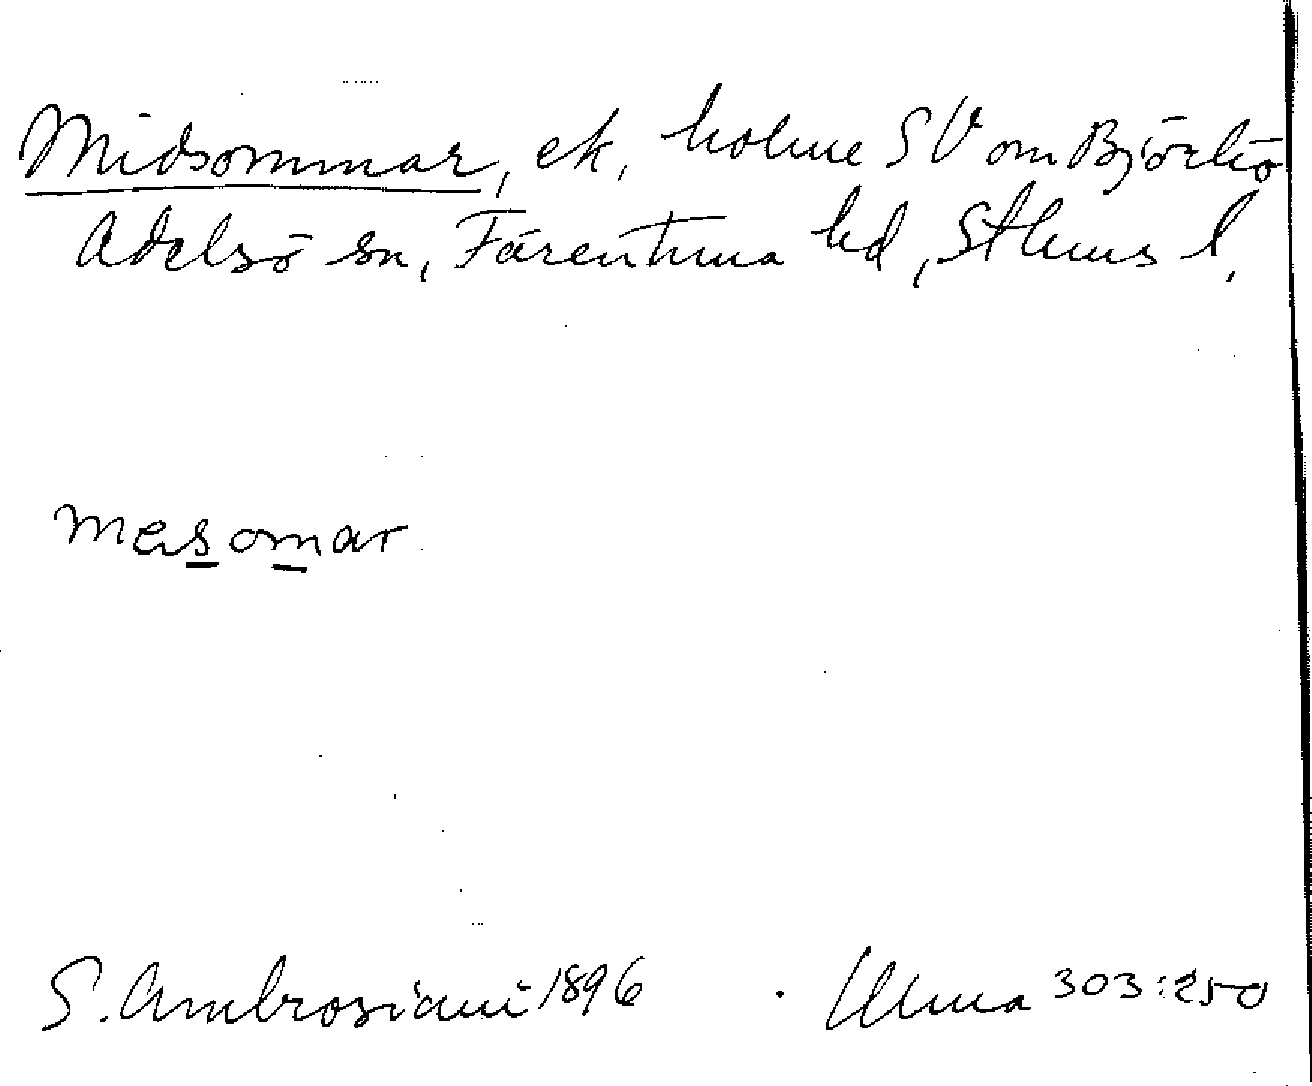 Midsommar, ek, holme SV om Björkö
Adelsö sn, Färentuna hd, Sthms l.
mesomar
S. Ambrosiani 1896 . Ulma 303:250